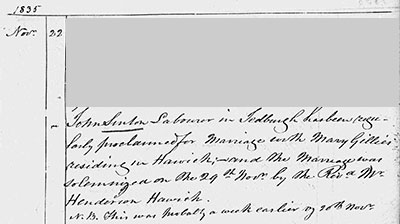 1835
Novr. 22
John Sinton Labourer in Jedburgh has been regu-
larly proclaimed for Marriage with Mary Gillies
residing in Hawick; and the Marriage was
solemnized on the 29th Novr. by the Revd. Mr.
Henderson Hawick.
N.B. This was probably a week earlier eg 20th Novr.